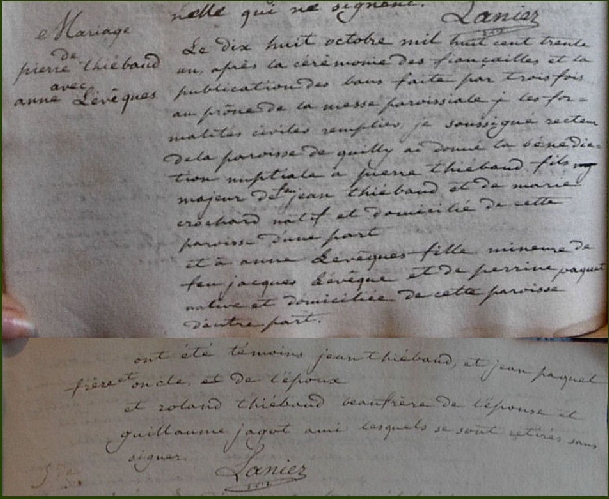 nelle qui ne signent.
Lanier
Mariage
de
pierre thiébaud
avec
anne Lévêques
Le dix huit octobre mil huit cent trente
un, après la cérémonie des fiançailles et la
publication des bans faite par trois fois
au prône de la messe paroissiale & les for-
malités civiles remplies, je soussigné recteur
de la paroisse de quilly ai donné la bénédic-
tion nuptiale à pierre thiébaud fils
majeur de jean thiébaud et de marie
crochard natif et domicilié de cette
paroisse d'une part
et à anne Levêques fille mineure de
feu jacques Levêque et de perrine paquet
native et domiciliée de cette paroisse
d'autre part.
ont été témoins jean thiébaud, et jean paquet
frère et oncle et de l'époux
et roland thiébaud beaufrère de l'épouse et
guillaume jagot ami lesquels se sont retirés sans
signer.
Lanier